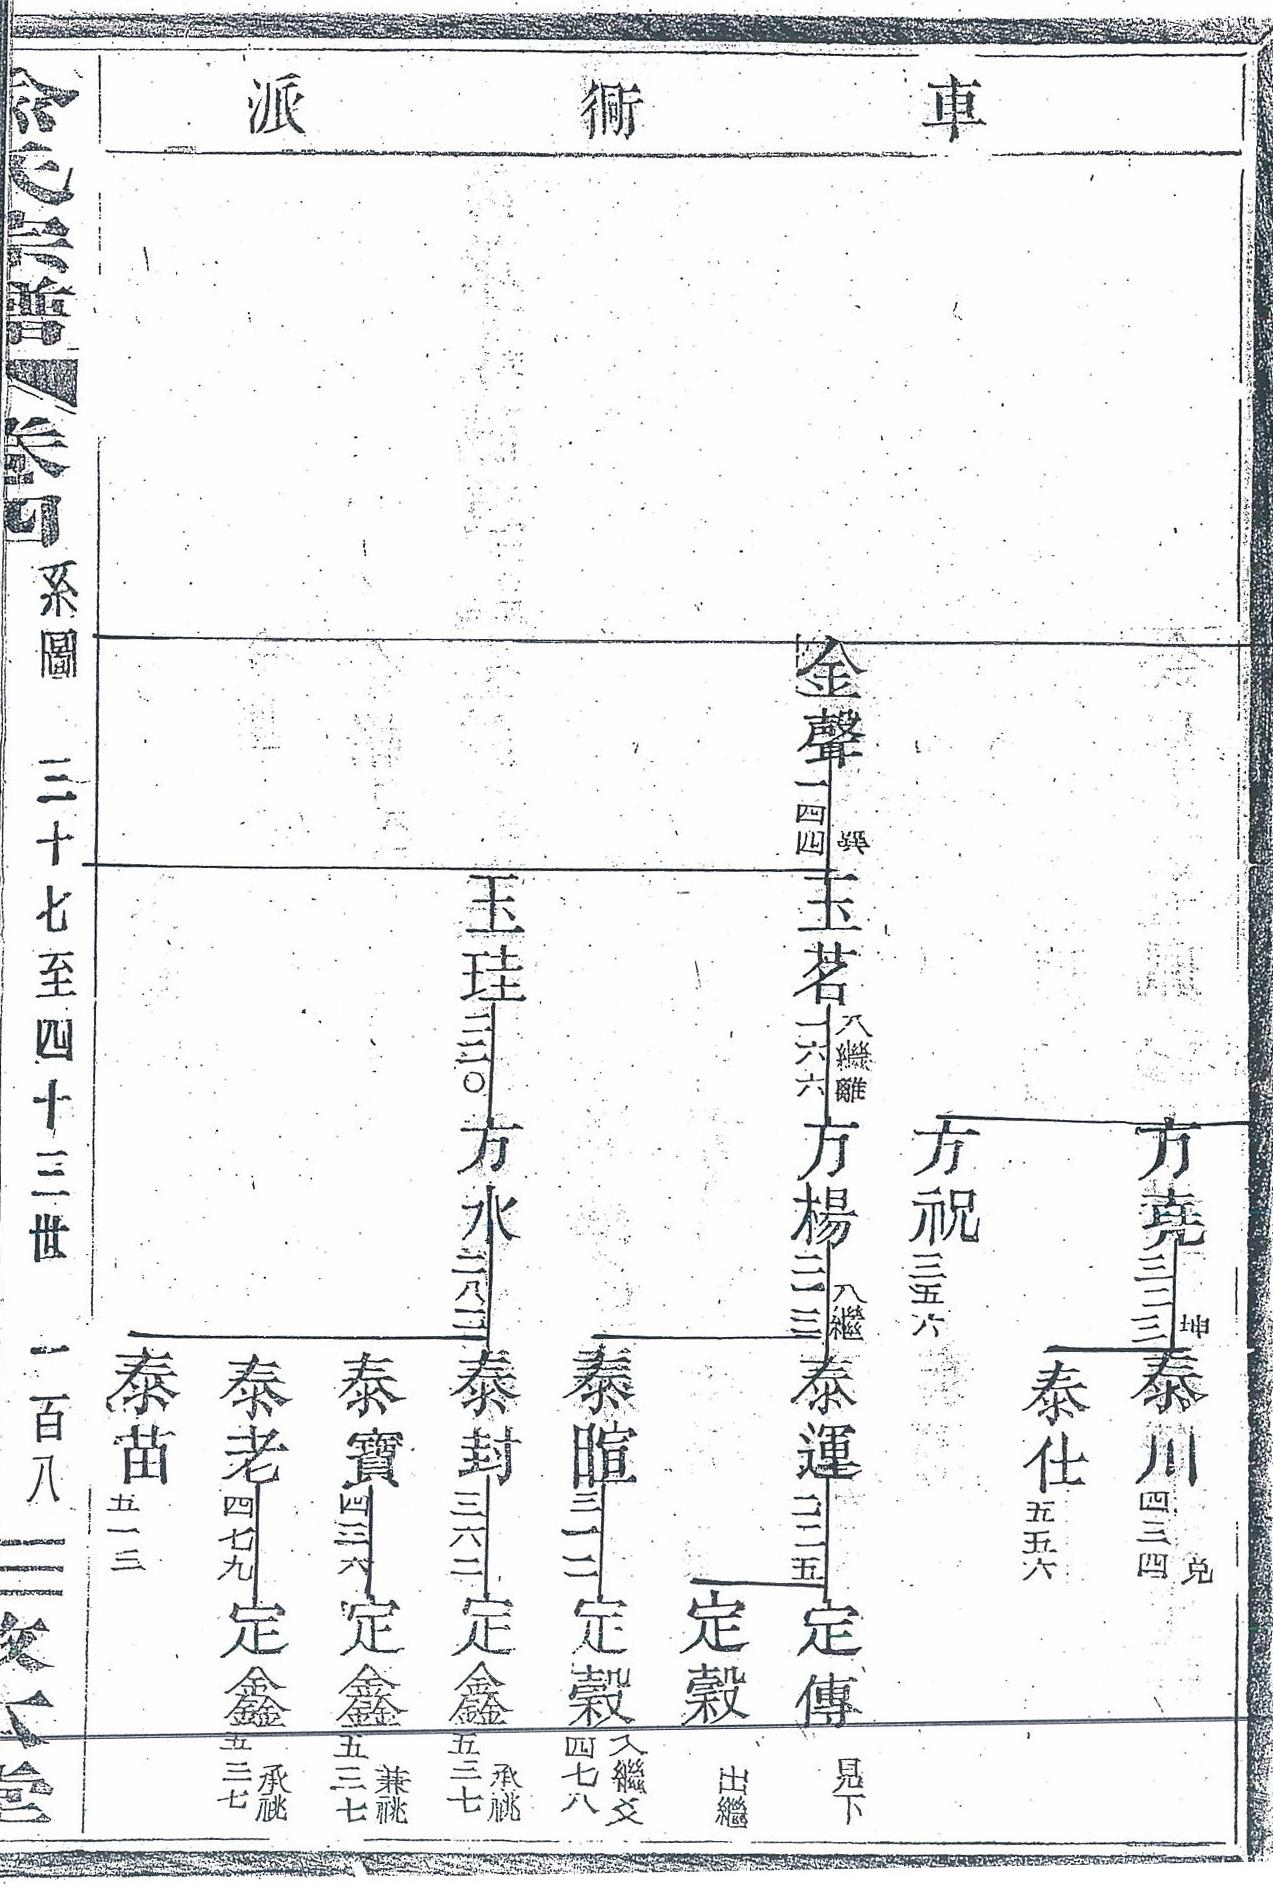 車衕派
方堯三二三坤
泰川四三四兌
泰仕五五六
方祝三五六
金聲一四四巽
玉茗一六六入繼離
方楊三一三入繼
泰運二二五
定傳見下
定穀出繼
泰暄三一二
定穀四七八入繼爻
玉珪二二〇
方水二八二
泰封三六二
定鑫五三七承祧
泰寶四三六
定鑫五三七兼祧
泰老四七九
定鑫五三七承祧
泰苗五一三
氏宗譜 卷四 系圖 三十七至四十三世 一百八